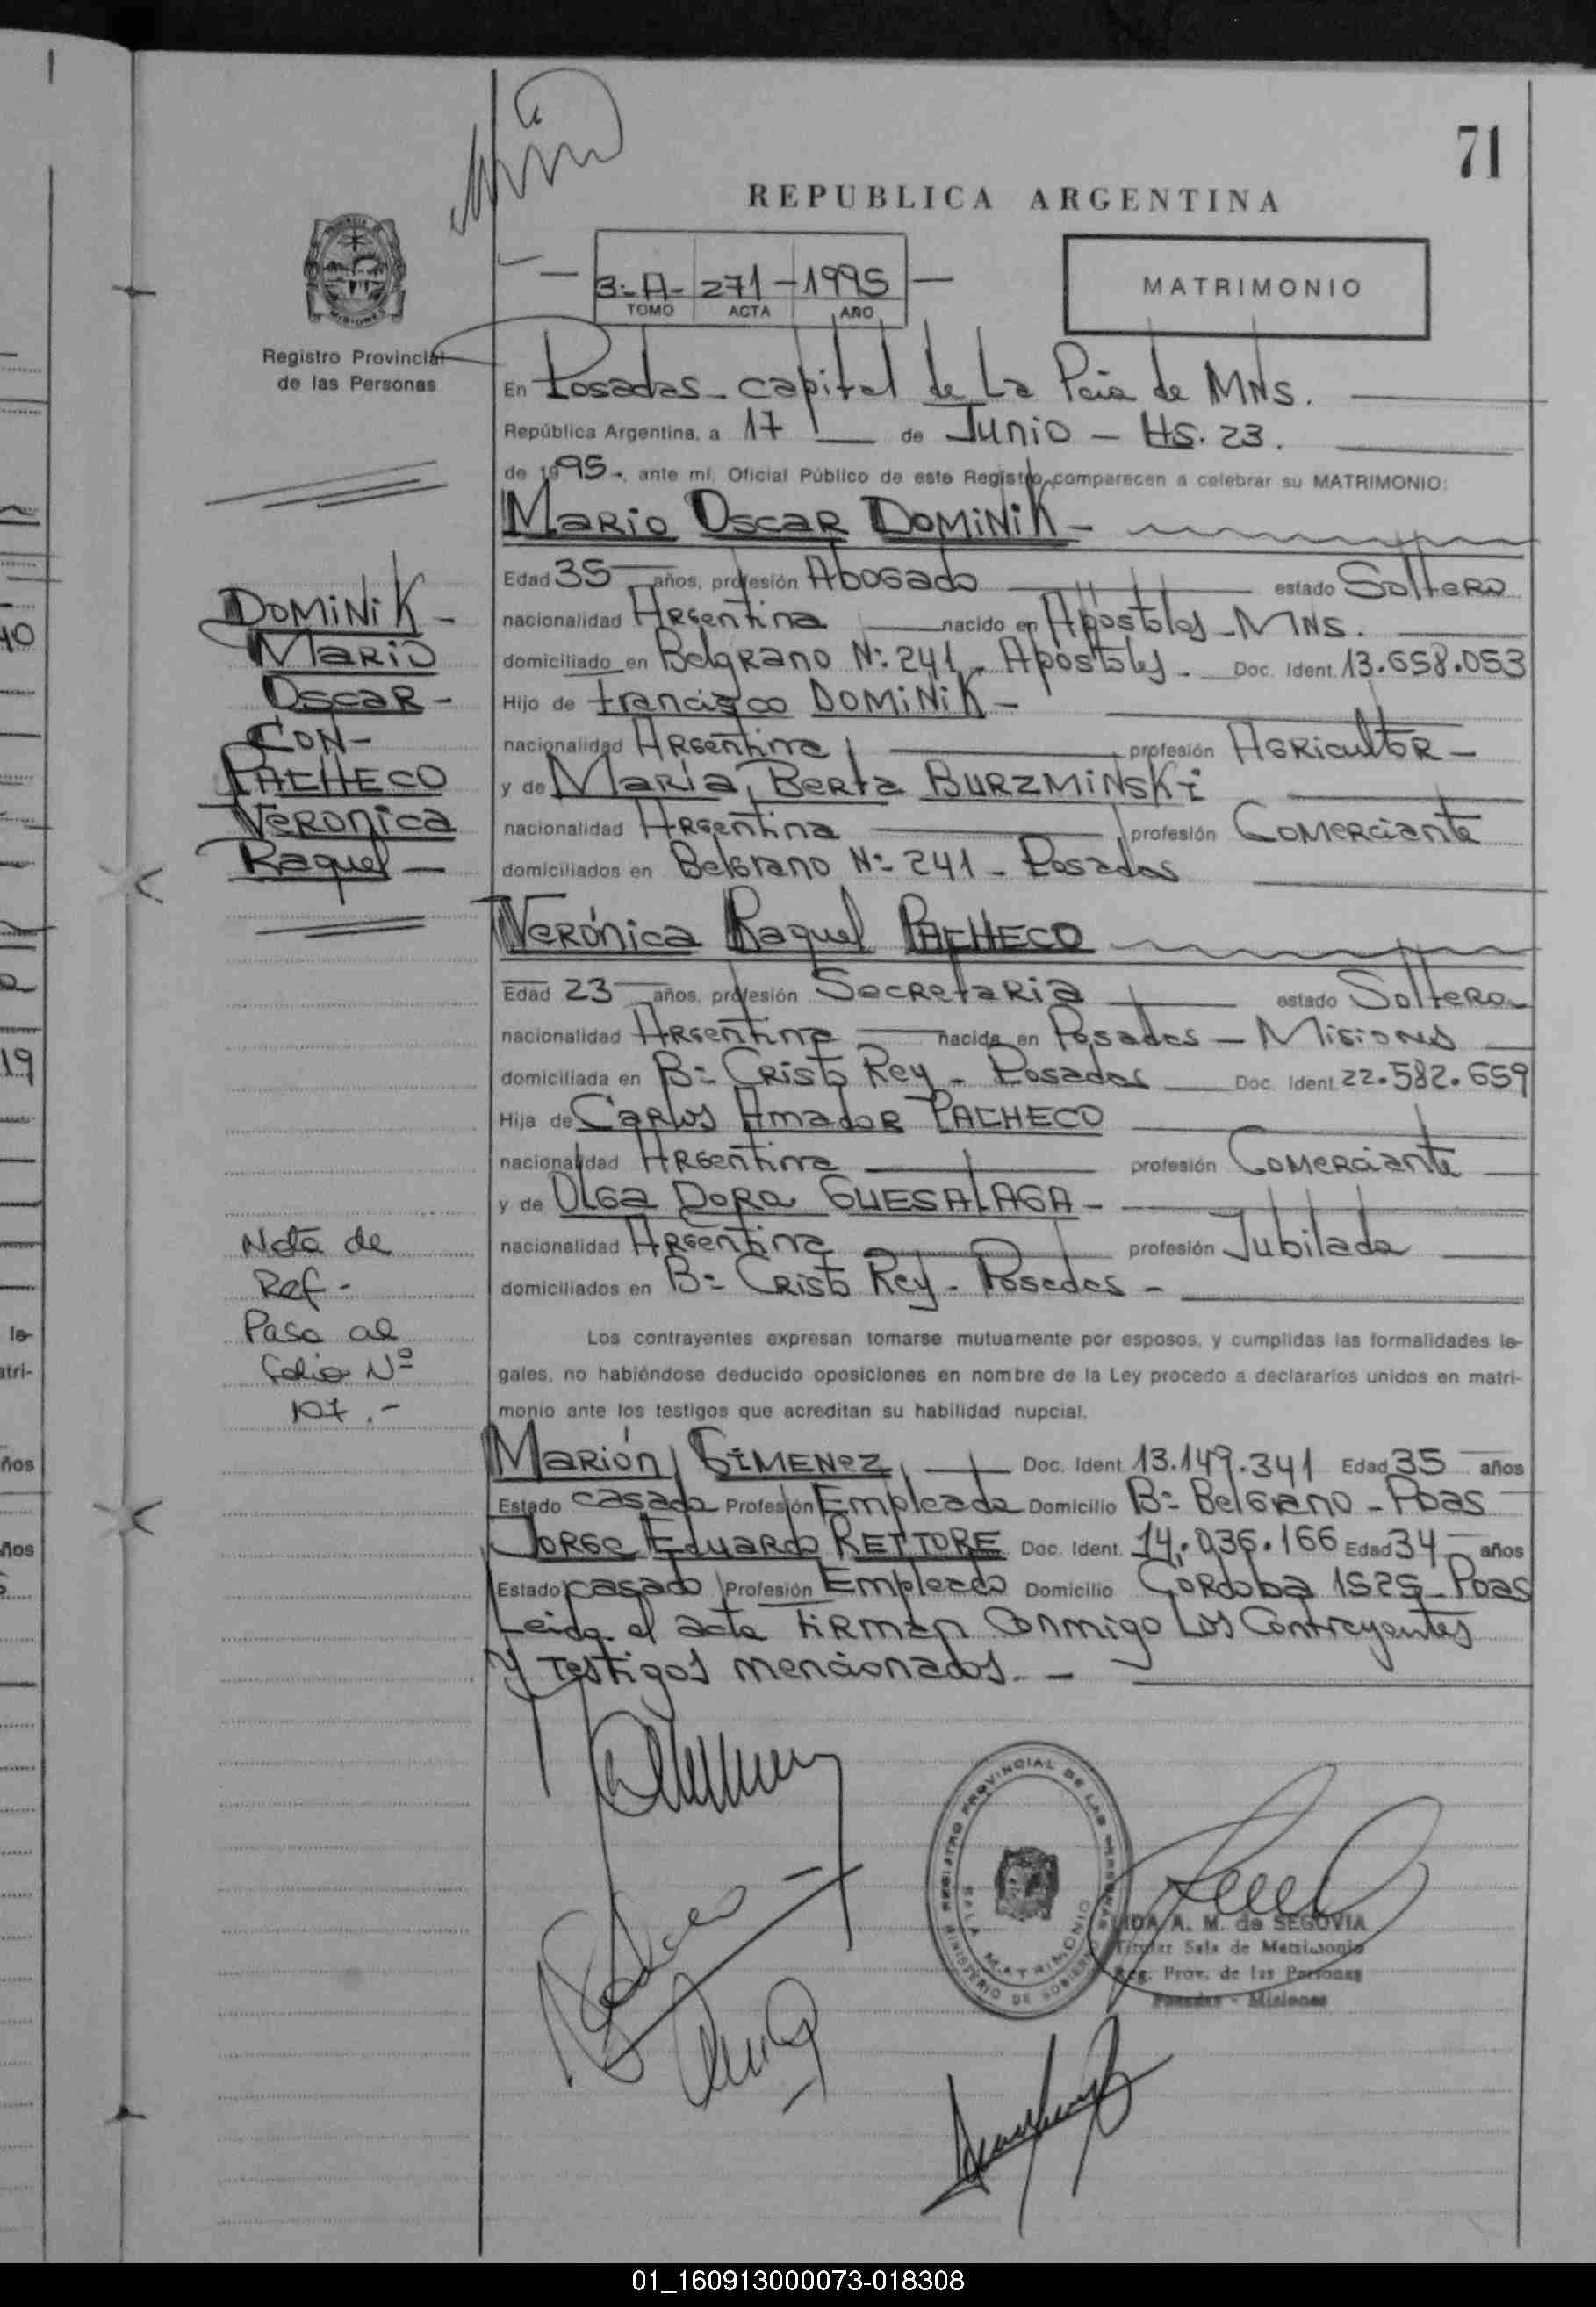 71
REPUBLICA ARGENTINA
3-A- 271 - 1995
TOMO ACTA AÑO
MATRIMONIO
Registro Provincial
de las Personas
En Posadas - capital de La Pcia de MNS.
República Argentina, a 17 de Junio - Hs. 23.
de 1995-, ante mí, Oficial Público de este Registro comparecen a celebrar su MATRIMONIO:
Mario Oscar DOMINIK -
Edad 35 años, profesión Abogado estado Soltero
nacionalidad Argentina nacido en Apóstoles - MNS.
domiciliado en Belgrano N: 241 - Apóstoles - Doc. Ident. 13.658.053
Hijo de Francisco DOMINIK -
nacionalidad Argentina profesión Agricultor -
y de María Berta BURZMINSKI
nacionalidad Argentina profesión Comerciante
domiciliados en Belgrano N: 241 - Posadas
DOMINIK -
Mario
Oscar -
CON -
PACHECO
Veronica
Raquel -
Verónica Raquel PACHECO
Edad 23 años, profesión Secretaria estado Soltera
nacionalidad Argentina nacida en Posadas - Misiones
domiciliada en B: Cristo Rey - Posadas Doc. Ident. 22.582.659
Hija de Carlos Amador PACHECO
nacionalidad Argentina profesión Comerciante
y de Olga Dora GUESALAGA -
nacionalidad Argentina profesión Jubilada
domiciliados en B: Cristo Rey - Posadas -
Nota de
Ref -
Pasa al
folio Nº
107.-
Los contrayentes expresan tomarse mutuamente por esposos, y cumplidas las formalidades le-
gales, no habiéndose deducido oposiciones en nombre de la Ley procedo a declararlos unidos en matri-
monio ante los testigos que acreditan su habilidad nupcial.
Marión GIMENEZ, Doc. Ident. 13.149.341 Edad 35 años
Estado casada Profesión Empleada Domicilio B: Belgrano - Pdas
Jorge Eduardo RETTORE Doc. Ident. 14.036.166 Edad 34 años
Estado casado Profesión Empleado Domicilio Córdoba 1525 - Pdas
Leida el acta firman conmigo Los Contrayentes
y testigos mencionados. -
REGISTRO PROVINCIAL DE LAS PERSONAS
SALA MATRIMONIO
MINISTERIO DE GOBIERNO
A. M. de SEGOVIA
Titular Sala de Matrimonio
Reg. Prov. de las Personas
Posadas - Misiones
01_160913000073-018308